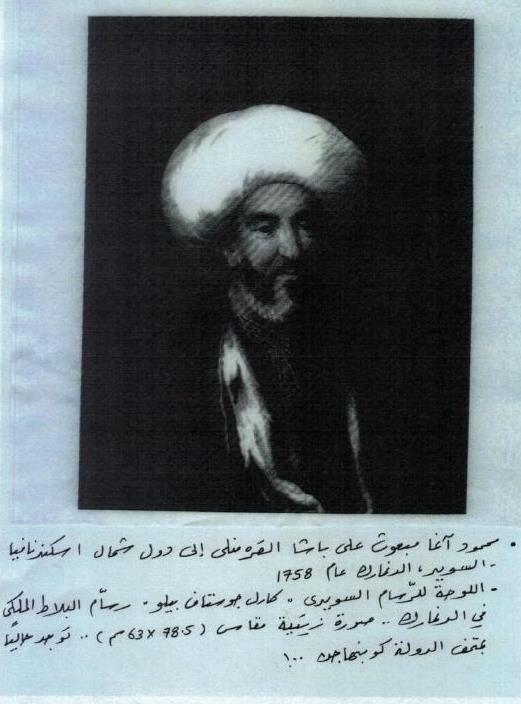 • محمود آغا مبعوث على باشا القره منلى إلى دول شمال اسكندنافيا
- السويد، الدنمارك عام 1758
- اللوحة للرّسام السويدى " كارل جوستاف بيلو - رسّام البلاط الملكى
في الدنمارك .. صورة زيتية مقاس (78.5 × 63 سم) .. توجد حاليًا
بمتحف الدولة كوبنهاجن ...